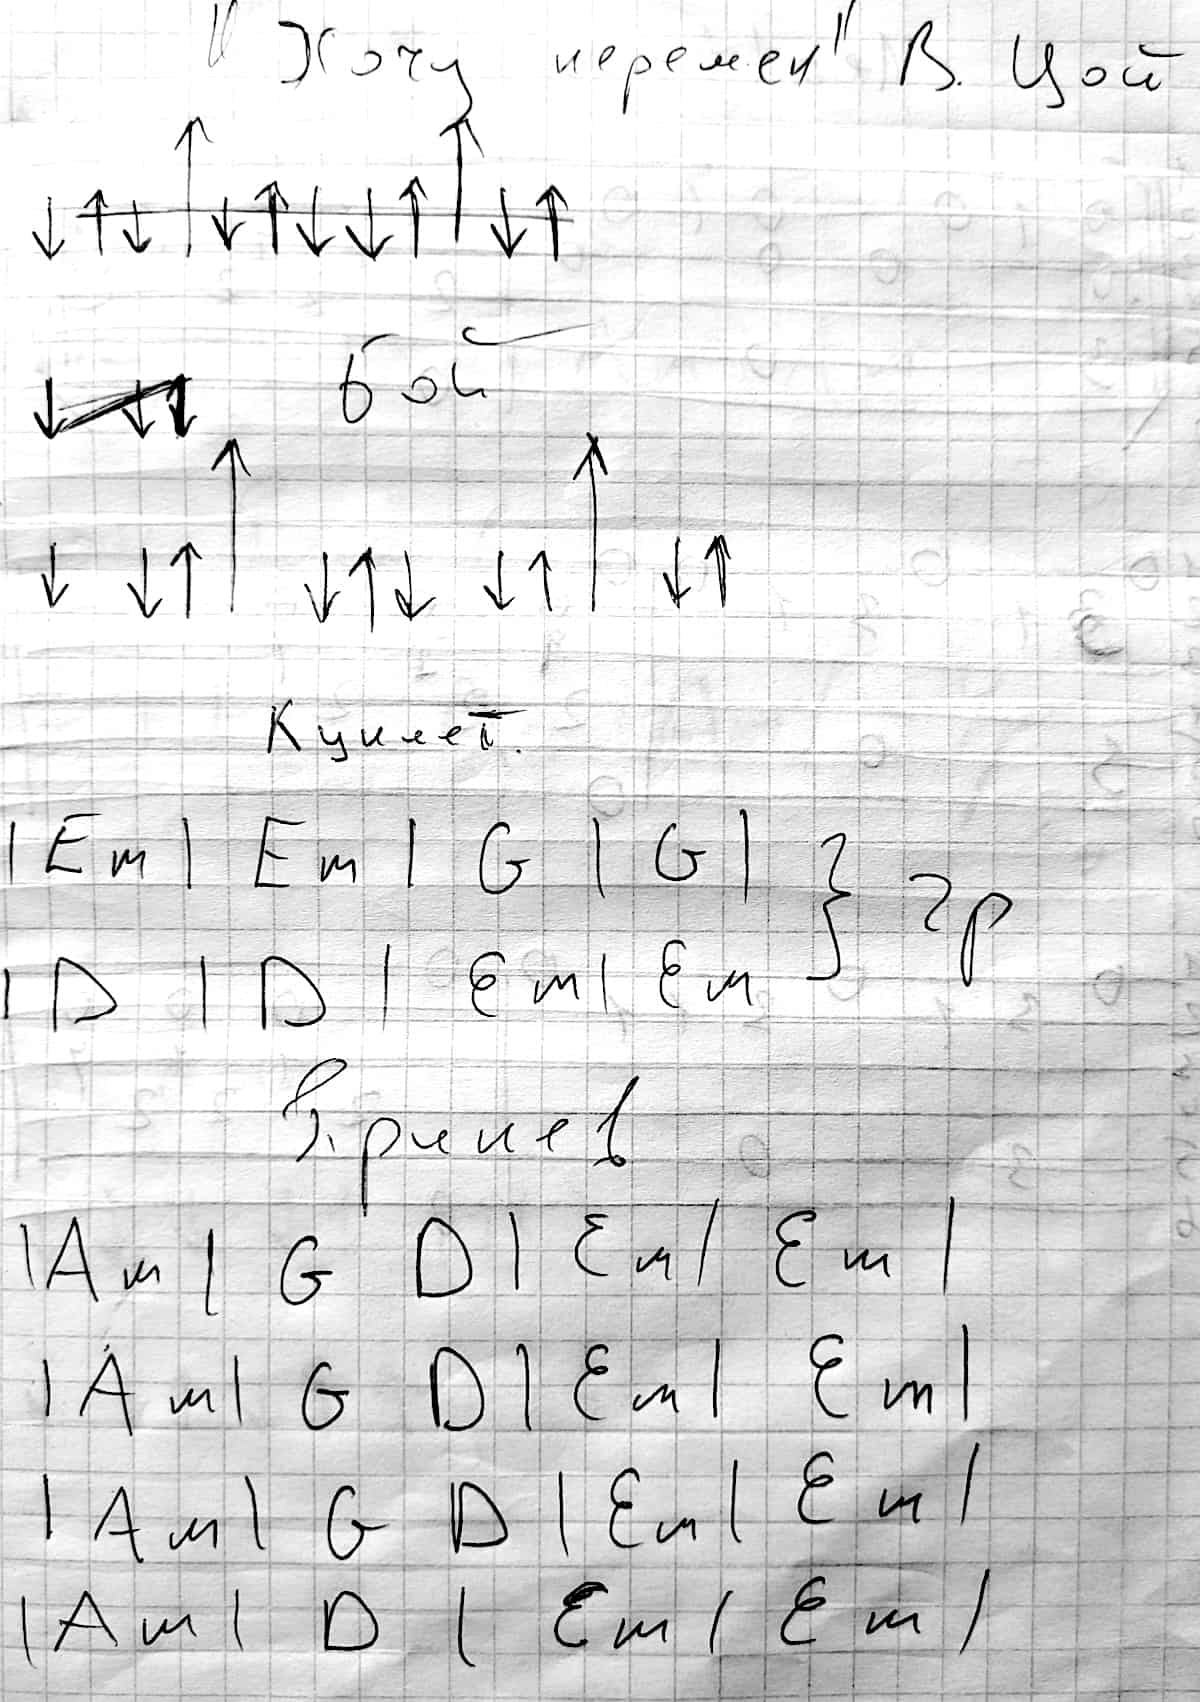 "Хочу перемен" В. Цой
↓ ↑ ↓ ↑ ↓ ↑ ↓ ↓ ↑ ↑ ↓ ↑
бой
↓ ↓ ↓
↓ ↓ ↑ ↑ ↓ ↑ ↓ ↓ ↑ ↑ ↓ ↑
Куплет.
| Em | Em | G | G | } 2р
| D | D | Em | Em
Припев
| Am | G D | Em | Em |
| Am | G D | Em | Em |
| Am | G D | Em | Em |
| Am | D | Em | Em |